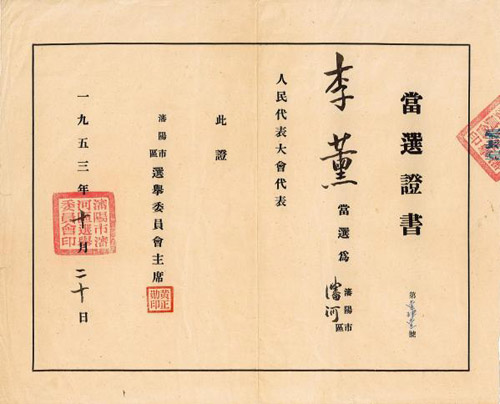 當選證書
第 號
李薰當選爲瀋陽市瀋河區
人民代表大會代表
此證
瀋陽市 區選舉委員會主席
一九五三年十月二十日
瀋陽市瀋
河區選舉
委員會印